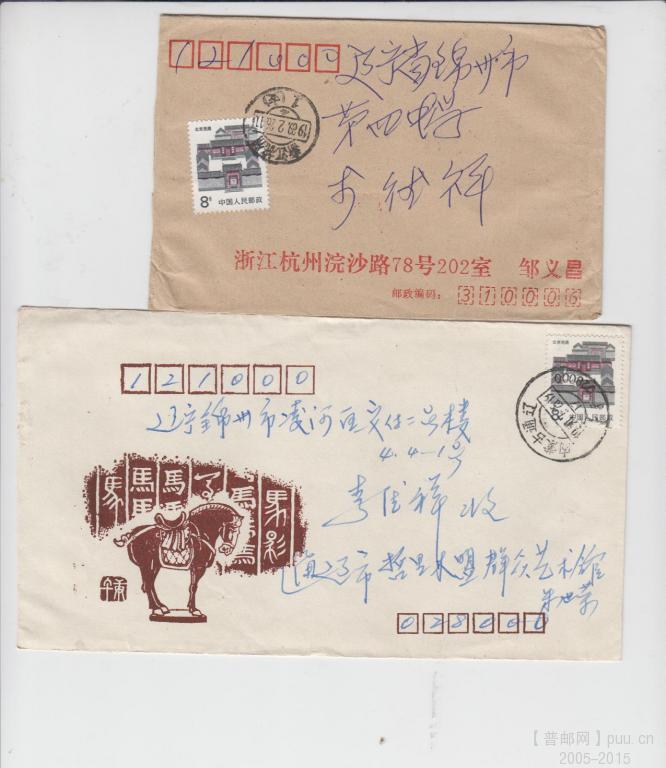 121000
辽宁省锦州市
第四中学
李德祥
北京民居
8分
中国人民邮政
浙江杭州浣沙路78号202室 邹义
邮政编码: 310006
121000
辽宁锦州市凌河区交仕二号楼
4.4-1号
李德祥 收
通辽市哲里木盟群众艺术馆
028000
北京民居
中国人民邮政
内蒙古通辽
【普邮网】puu.cn
2005-2015